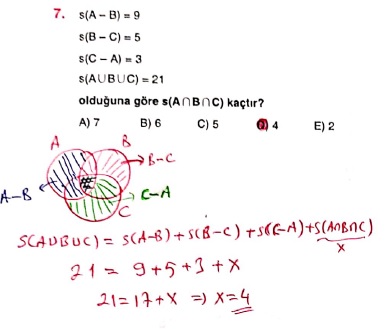 7. s(A – B) = 9
s(B – C) = 5
s(C – A) = 3
s(A∪B∪C) = 21
olduğuna göre s(A∩B∩C) kaçtır?
A) 7 B) 6 C) 5 D) 4 E) 2
A B
B–C
A–B C–A
C
S(A∪B∪C) = S(A–B) + S(B–C) + S(C–A) + S(A∩B∩C)
x
21 = 9+5+3+x
21=17+x ⇒ x=4